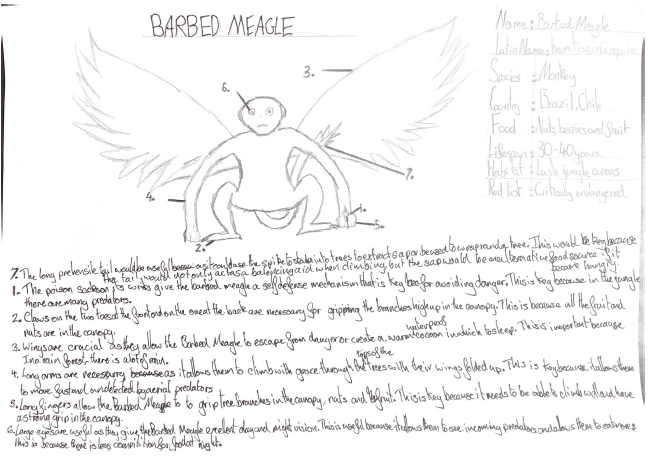 BARBED MEAGLE
Name : Barbed Meagle
Latin Name :
Species : Monkey
Country : Brazil, Chile
Food : Nuts, berries and fruit
Lifespan : 30-40 years
Habitat : Lush jungle areas
Red list : Critically endangered
6.
3.
4.
7.
1.
5.
2.
7. The long prehensile tail would be useful because as it could use the spike to stab into trees to extract sap or be used to wrap around a tree. This would be key because
the tail, would not only act as a balancing aid when climbing, but the sap would be an alternative food source if it
became hungry.
1. The poison sacks on its wrists give the barbed meagle a self defense mechanism that is key for avoiding danger. This is key because in the jungle
there are many predators.
2. Claws on the two toes at the front and one at the back are necessary for gripping the branches high up in the canopy. This is because all the fruit and
nuts are in the canopy.
3. Wings are crucial as they allow the Barbed Meagle to escape from danger or create a warm waterproof cocoon in which to sleep. This is important because
In a rain forest, there is a lot of rain.
4. Long arms are necessary because as it allows them to climb with grace through the tops of the trees with their wings folded up. This is key because it allows them
to move fast and undetected by aerial predators
5. Long fingers allow the Barbed Meagle to to grip tree branches in the canopy, nuts and fruit. This is key because it needs to be able to climb well and have
a strong grip in the canopy.
6. Large eyes are useful as they give the Barbed Meagle excellent day and night vision. This is useful because it allows them to see incoming predators and allows them to eat
This is because there is less competition for food at night.